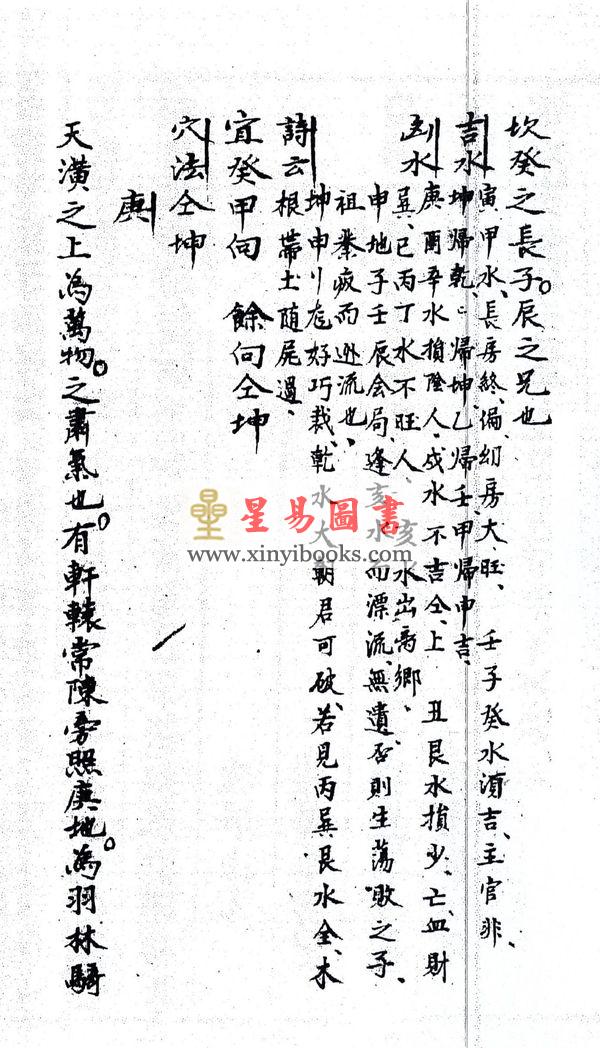 坎癸之長子。辰之兄也
吉水
寅甲水、長房終、偏幼房大旺、 壬子癸水湏吉、主官非、
坤歸乾、乾歸坤、乙歸壬、甲歸申吉、
凶水
庚酉辛水損陰人、戍水不吉仝上 丑艮水損少、亡血財
巽、巳丙丁水不旺人、亥水出离鄉、
申地子壬辰会局、逢亥水而漂流、無遺、否則生蕩敗之子、
祖業疲而逃流也、
詩云
坤申刂庭好巧裁、乾水大朝君可破、若見丙巽艮水全、木
根蒂土随尾過、
宜癸甲向 餘向仝坤
穴法仝坤
庚
天潢之上為萬物。之肅氣也。有軒轅常陳旁照庚地。為羽林騎
星易圖書
www.xinyibooks.com